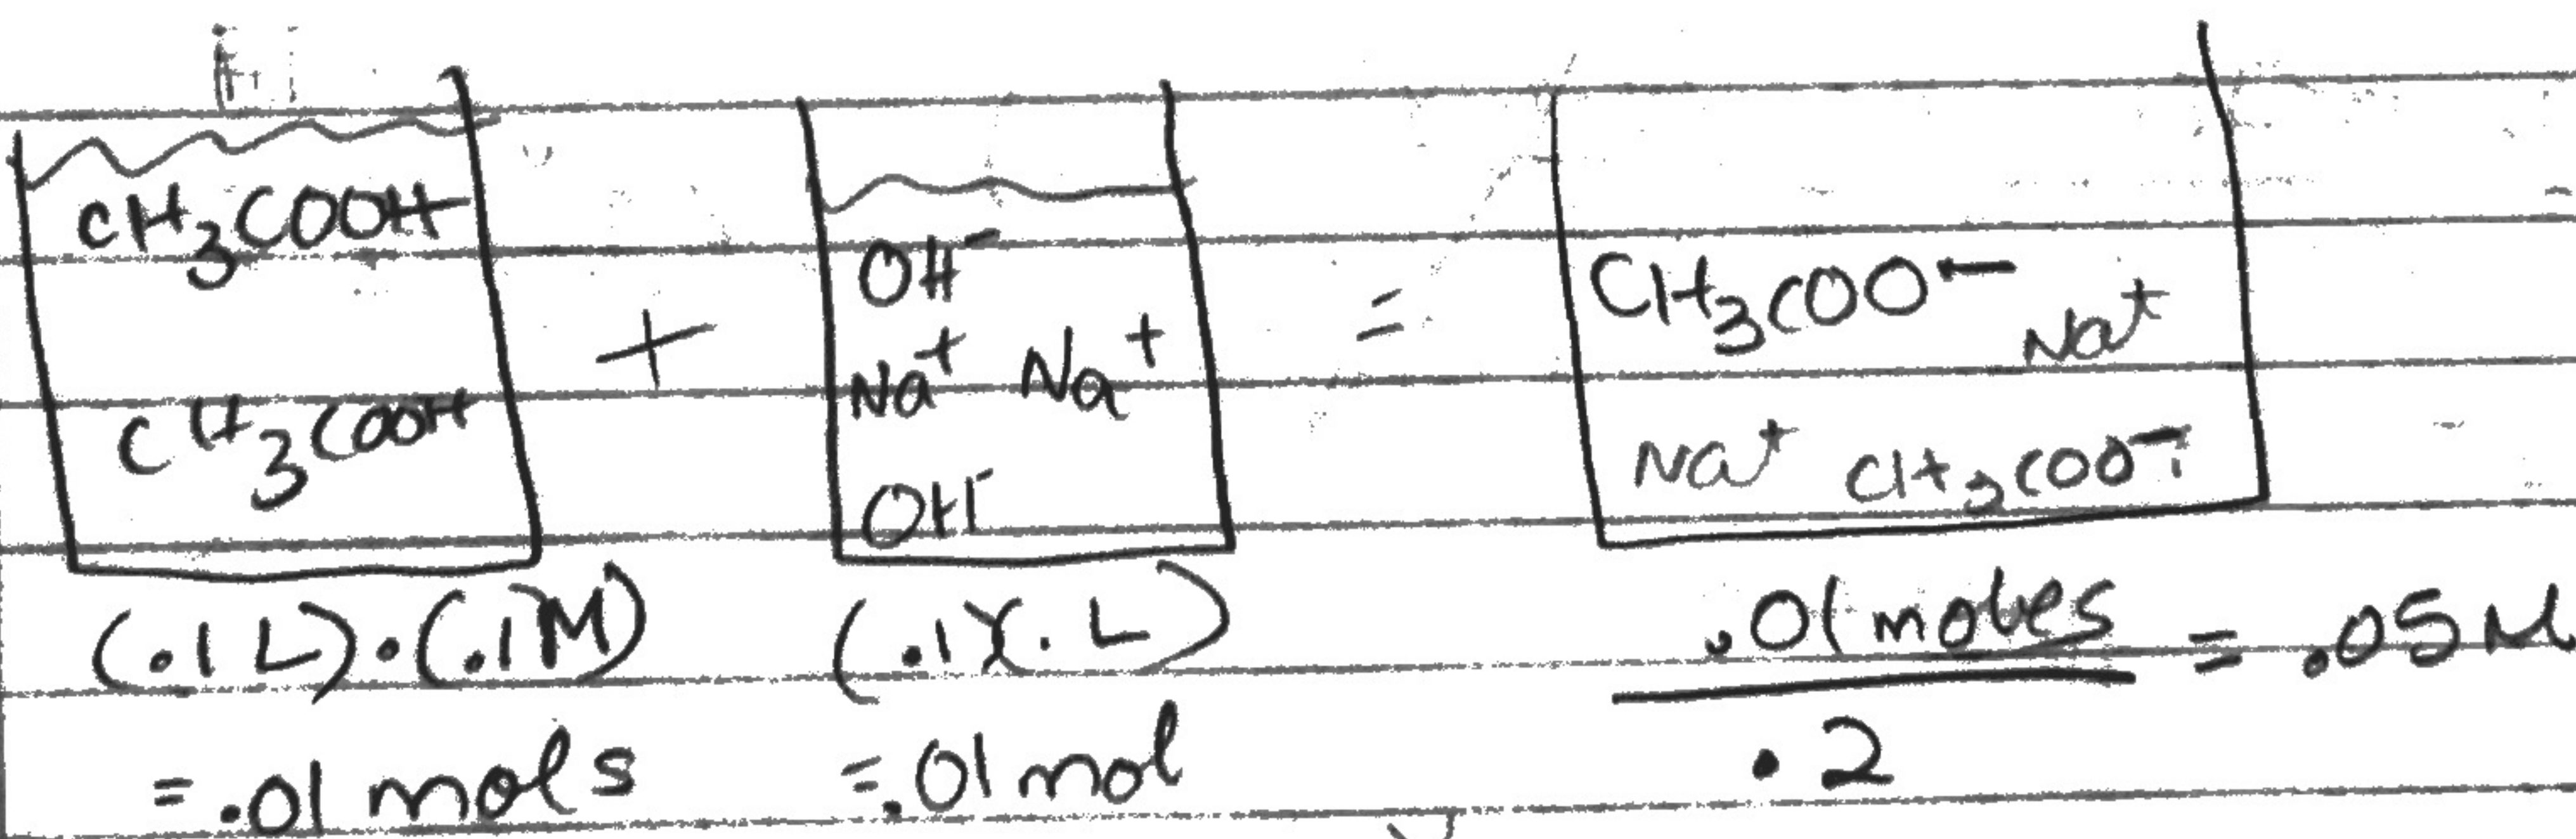 CH3COOH
CH3COOH
+
OH-
Na+ Na+
OH-
=
CH3COO- Na+
Na+ CH3COO-
(.1 L)·(.1M)
= .01 mols
(.1)(. L)
= .01 mol
.01 moles
.2
= .05 M